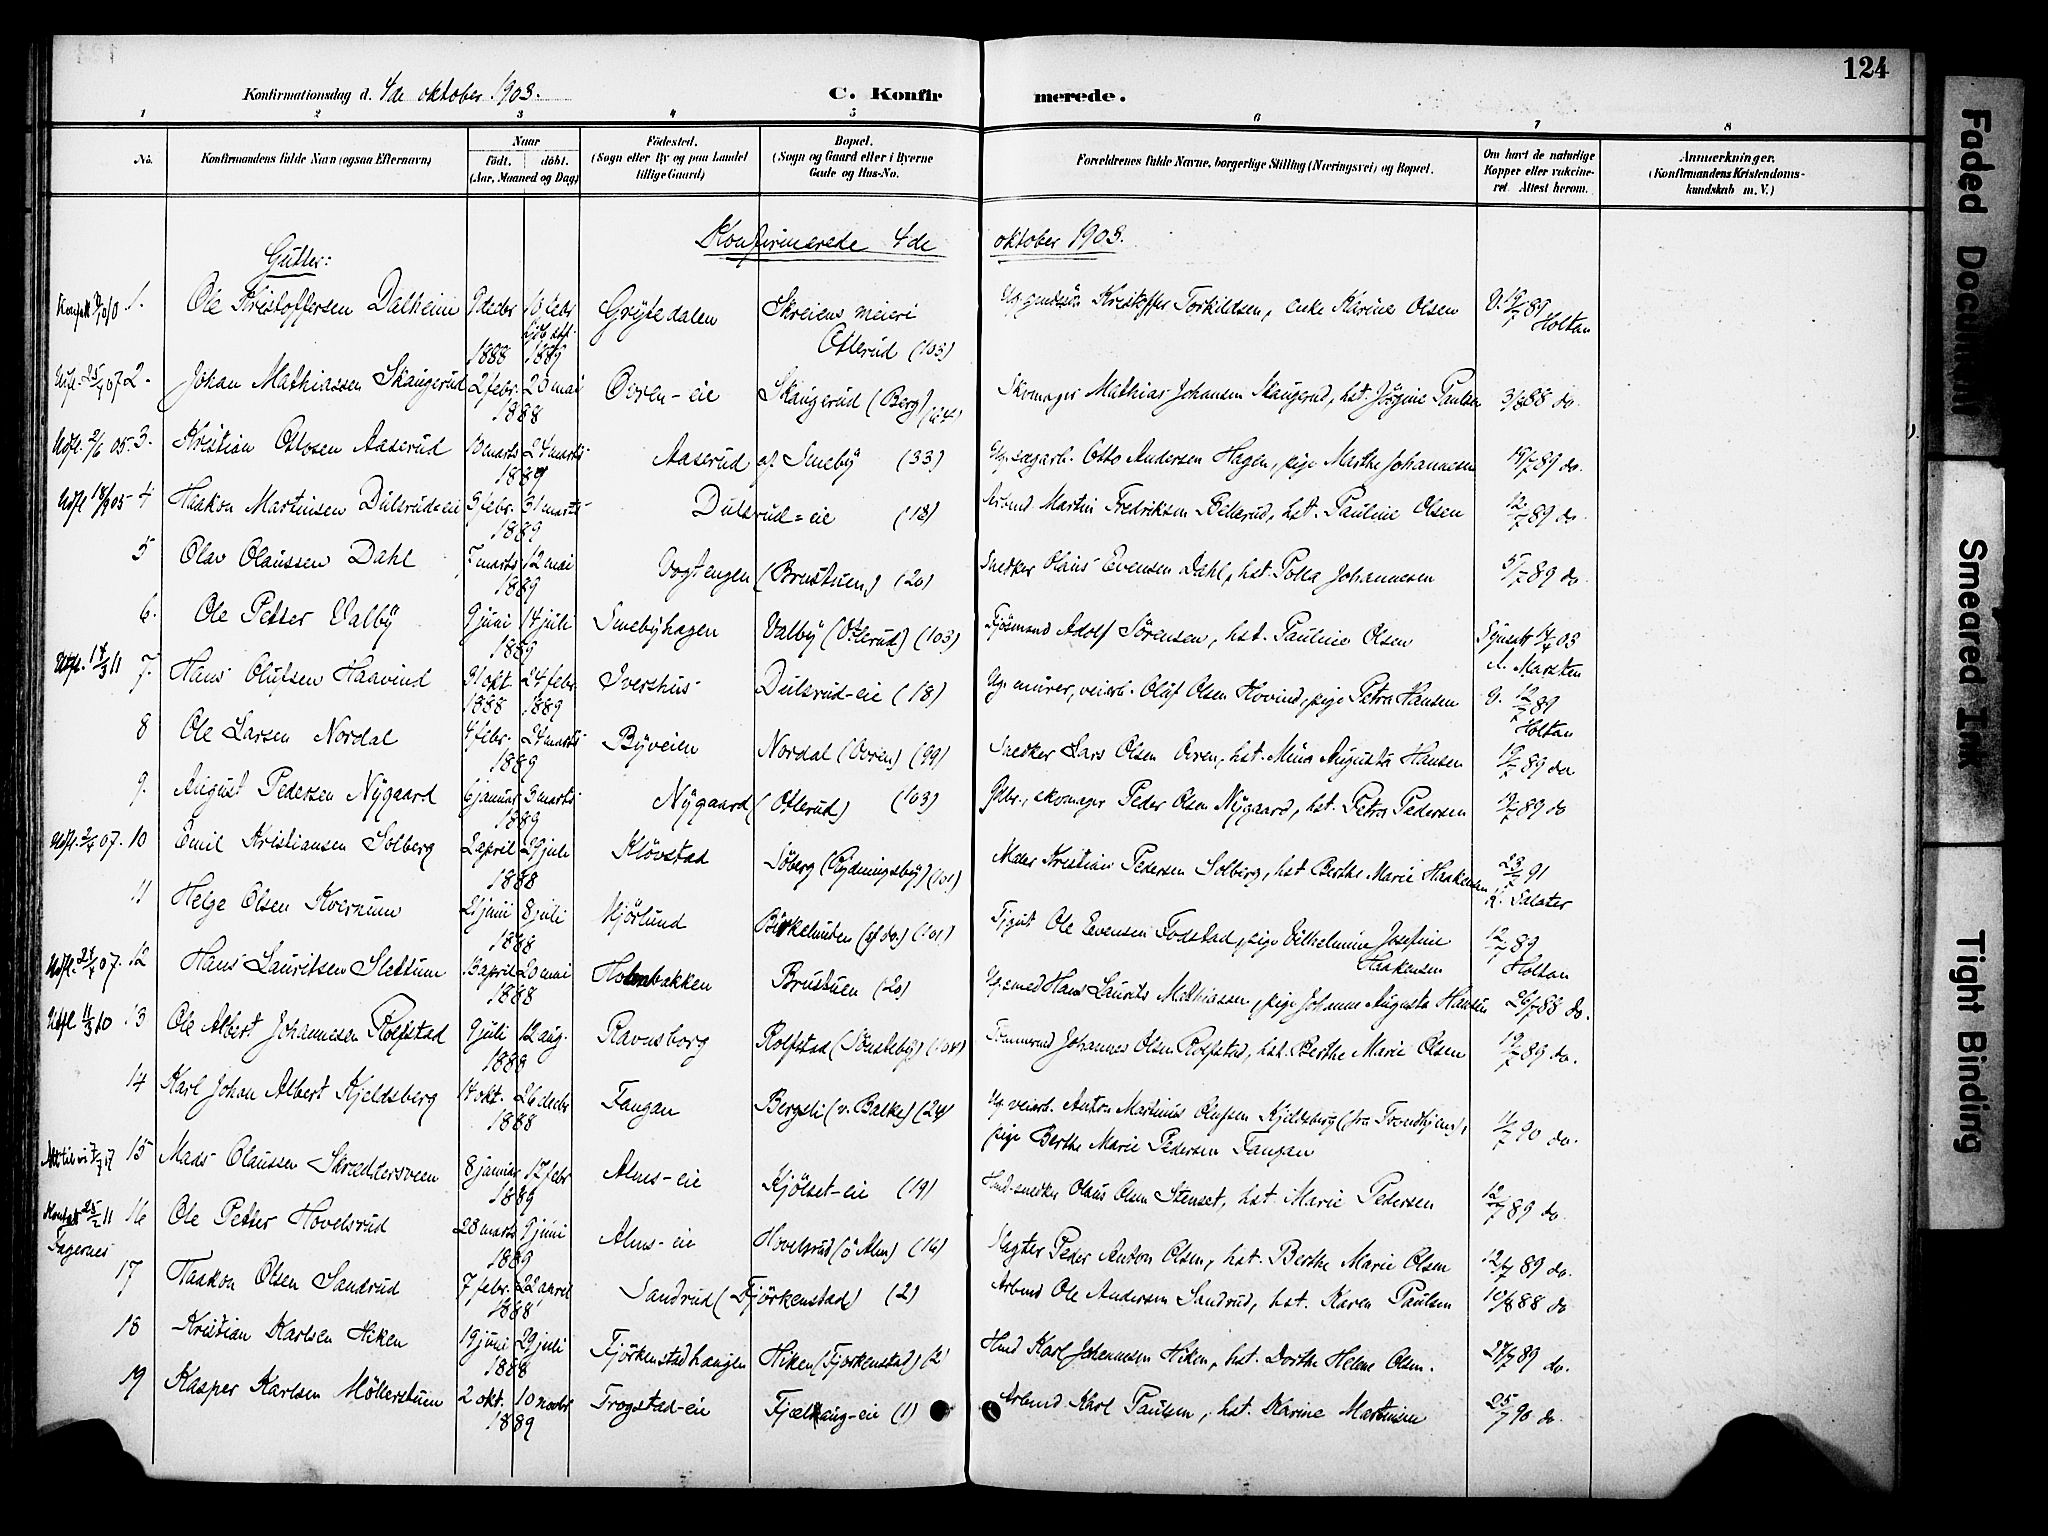 124
Konfirmationsdag d. 4de oktober 1903.
C. Konfirmerede.
1 2 3 4 5 6 7 8
No.
Konfirmandens fulde Navn (ogsaa Efternavn)
Naar
født. døbt.
(Aar, Maaned og Dag)
Fødested.
(Sogn eller By og paa Landet
tillige Gaard)
Bopæl.
(Sogn og Gaard eller i Byerne
Gade og Hus-No.
Forældrenes fulde Navne, borgerlige Stilling (Næringsvei) og Bopæl.
Om havt de naturlige
Kopper eller vakcine-
ret. Attest herom.
Anmerkninger.
(Konfirmandens Kristendoms-
kundskab m. V.)
Konfirmerede 4de oktober 1903.
Gutter:
1. Ole Kristoffersen Dalheim 9 decbr 1888 10 febr 1889 Grytedalen Skreiens meieri Otterud (103) Kristoffer Torkildsen, enke Karine Olsen 12/7 89 Holtan
Utfl. 25/4 07 2. Johan Mathiassen Skaugerud 2 febr. 20 mai 1888 Ovren-eie Skaugerud (Berg) (24) Skomager Mathias Johansen Skaugerud, hst. Jørgine Paulsen 3/8 88 do.
Utfl. 2/6 05 3. Kristian Ottosen Aaserud 10 marts 24 marts 1889 Aaserud af Smeby (33) Ug. sagarb. Otto Andersen Hagen, pige Marthe Johannesen 19/7 89 do.
Utfl 18/9 05 4 Haakon Martinsen Dulsrud=eie 3 febr. 31 marts 1889 Dulsrud=eie (18) Arbmd. Martin Fredriksen Bellerud, hst. Pauline Olsen 12/7 89 do
5 Olav Olaussen Dahl 7 marts 12 mai 1889 Vogtengen (Brustuen) (20) Snedker Olaus Evensen Dahl, hst. Polla Johannesen 5/7 89 do
6. Ole Petter Valby 9 juni 14 juli 1889 Smebyhagen Valby (Otterud) (103) Fjøsmand Adolf Sørensen, hst. Pauline Olsen 17/4 03 A. Marsten
Utfl. 14/3 11 7. Hans Olufsen Haavind 31 okt 1888 24 febr. 1889 Ivershus Dulsrud-eie (18) Ug. murer, veiarb. Oluf Olsen Hovind, pige Petra Hansen v. 12/7 89 Holtan
8 Ole Larsen Nordal 4 febr. 24 marts 1889 Byveien Nordal (Ovren) (99) Snedker Lars Olsen Ovren, hst. Mina Augusta Hansen 12/7 89 do
9. August Pedersen Nygaard 6 januar 3 marts 1889 Nygaard (Otterud) (103) Gdbr., skomager Peder Olsen Nygaard, hst. Petra Pedersen 12/7 89 do
Utfl. 2/4 07. 10 Emil Kristiansen Solberg 2 april 29 juli 1888 Kløvstad Søberg (Rydningsby) (101) Maler Kristian Pedersen Solberg, hst Berthe Marie Haakensen 23/7 91 K. Salater
11 Helge Olsen Kvernum 21 juni 8 juli 1888 Mjørlund Birkelunden (af do.) (101) Tjgut Ole Evensen Fodstad, pige Vilhelmine Josefine Haakensen 12/7 89 Holtan
Utfl. 21/4 07. 12 Hans Lauritsen Slettum 13 april 20 mai 1888 Holmbakken Brustuen (20) Ug. smed Hans Laurits Mathiassen, pige Johanne Augusta Hansen 26/7 88 do.
Utfl 11/3 10 13 Ole Albert Johannesen Rolfstad 9 juli 12 aug. 1888 Ravnsborg Rolfstad (Sønsteby) Tømmermd Johannes Olsen Rolfstad, hst. Berthe Marie Olsen 12/7 89 do.
14 Karl Johan Albert Kjeldsberg 14 okt. 26 decbr 1888 Fangan Bergsli (v. Balke) (24) Ug. veiarb. Anton Martinus Olufsen Kjeldsberg (fra Trondhjem), pige Berthe Marie Pedersen Fangan 11/7 90 do.
15 Mads Olaussen Skræddersveen 8 januar 17 febr 1889 Alnes-eie Kjølset-eie (19) Hmd. snedker Olaus Olsen Stenset, hst. Marie Pedersen 12/7 89 do.
Konfatt 25/2 11 Fagernes 16 Ole Petter Hovelsrud 28 marts 9 juni 1889 Alms-eie Hovelsrud (ø Alm) (16) Slagter Peder Anton Olsen, hst. Berthe Marie Olsen 12/7 89 do.
17 Haakon Olsen Sandrud 7 febr. 22 april 1888 Sandrud (Fjørkenstad) (2) Arbmd Ole Andersen Sandrud, hst. Karen Paulsen 10/8 88 do
18 Kristian Karlsen Hiken 19 juni 29 juli 1888 Fjørkenstadhaugen Hiken (Fjørkenstad) (2) Hmd Karl Johannesen Hiken, hst. Dorthe Helene Olsen. 27/7 89 do.
19 Kasper Karlsen Møllerstuen 2 okt. 10 novbr 1889 Frogstad-eie Fjælhaug-eie (1) Arbmd. Karl Paulsen, hst. Karine Martinsen 25/7 90 do.
Faded Document
Smeared Ink
Tight Binding